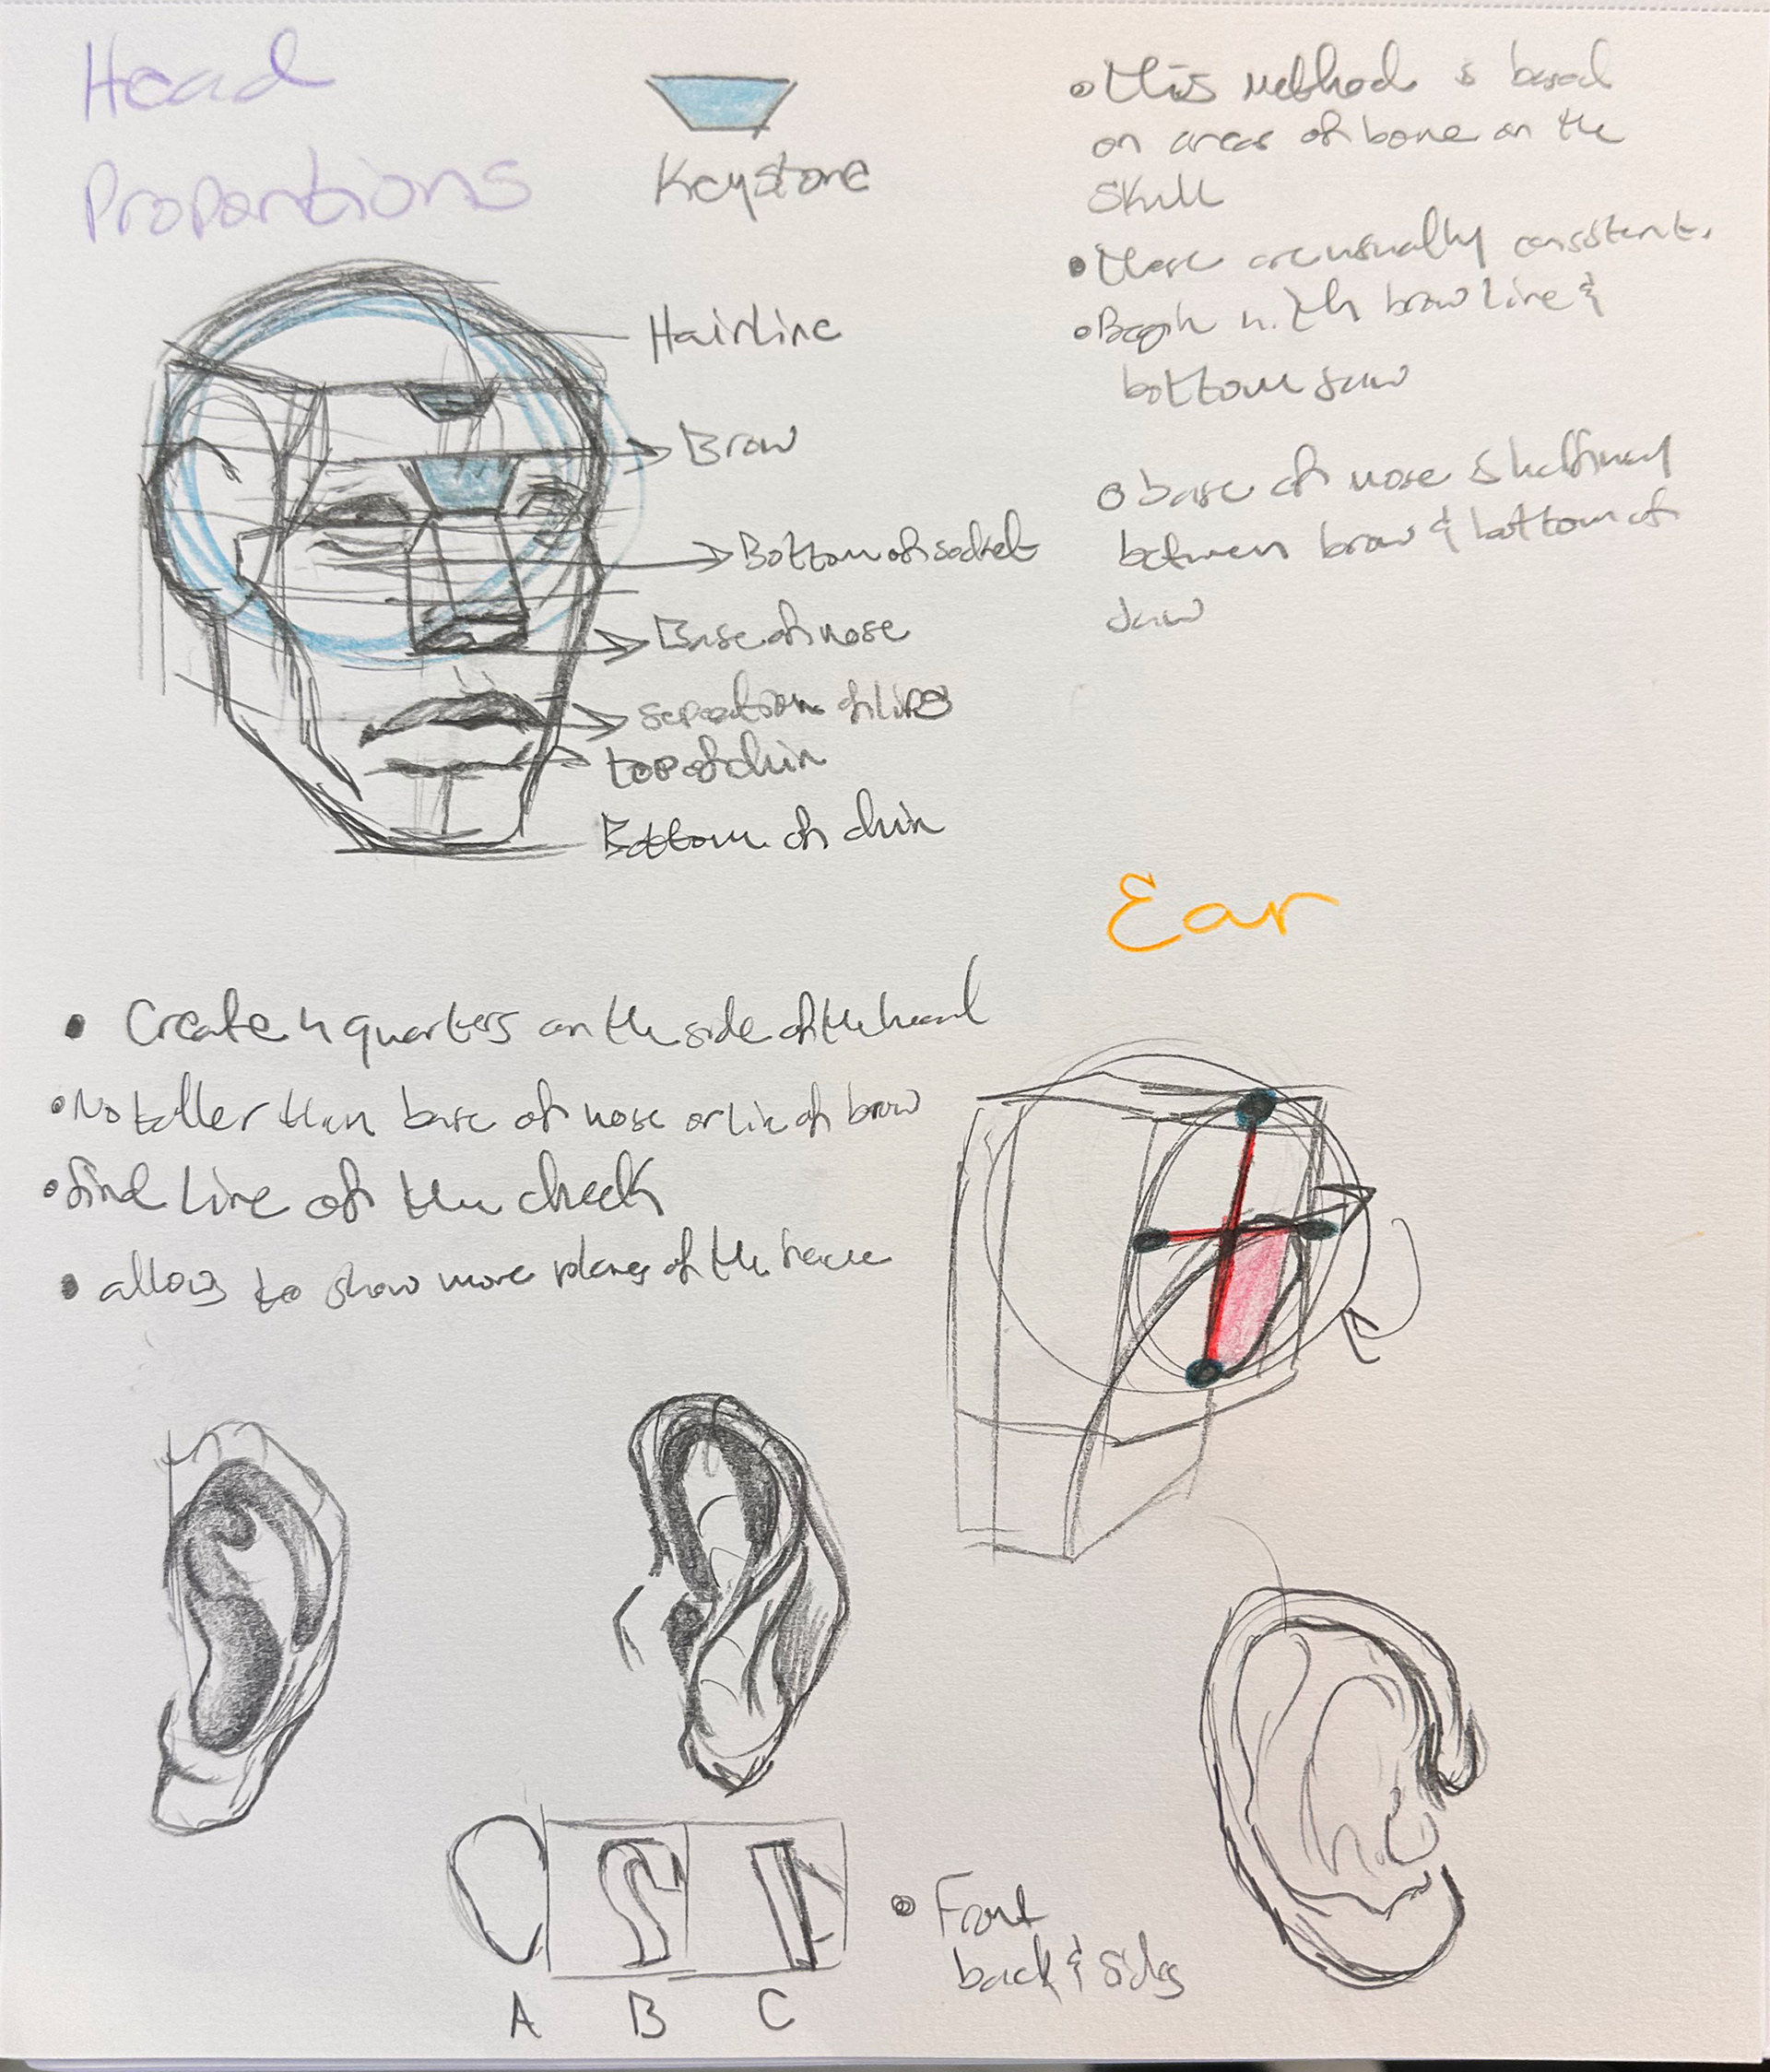 Head
Proportions
Keystone
Hairline
Brow
Bottom of socket
Base of nose
separation of lips
top of chin
Bottom of chin
• this method is based
on areas of bone on the
skull
• these are usually consistent.
• Begin with brow line &
bottom jaw
• base of nose is halfway
between brow & bottom of
Jaw
Ear
• Create 4 quarters on the side of the head
• No taller than base of nose or line of brow
• find line of the cheek
• allows to show more planes of the
A B C
• Front
back & sides